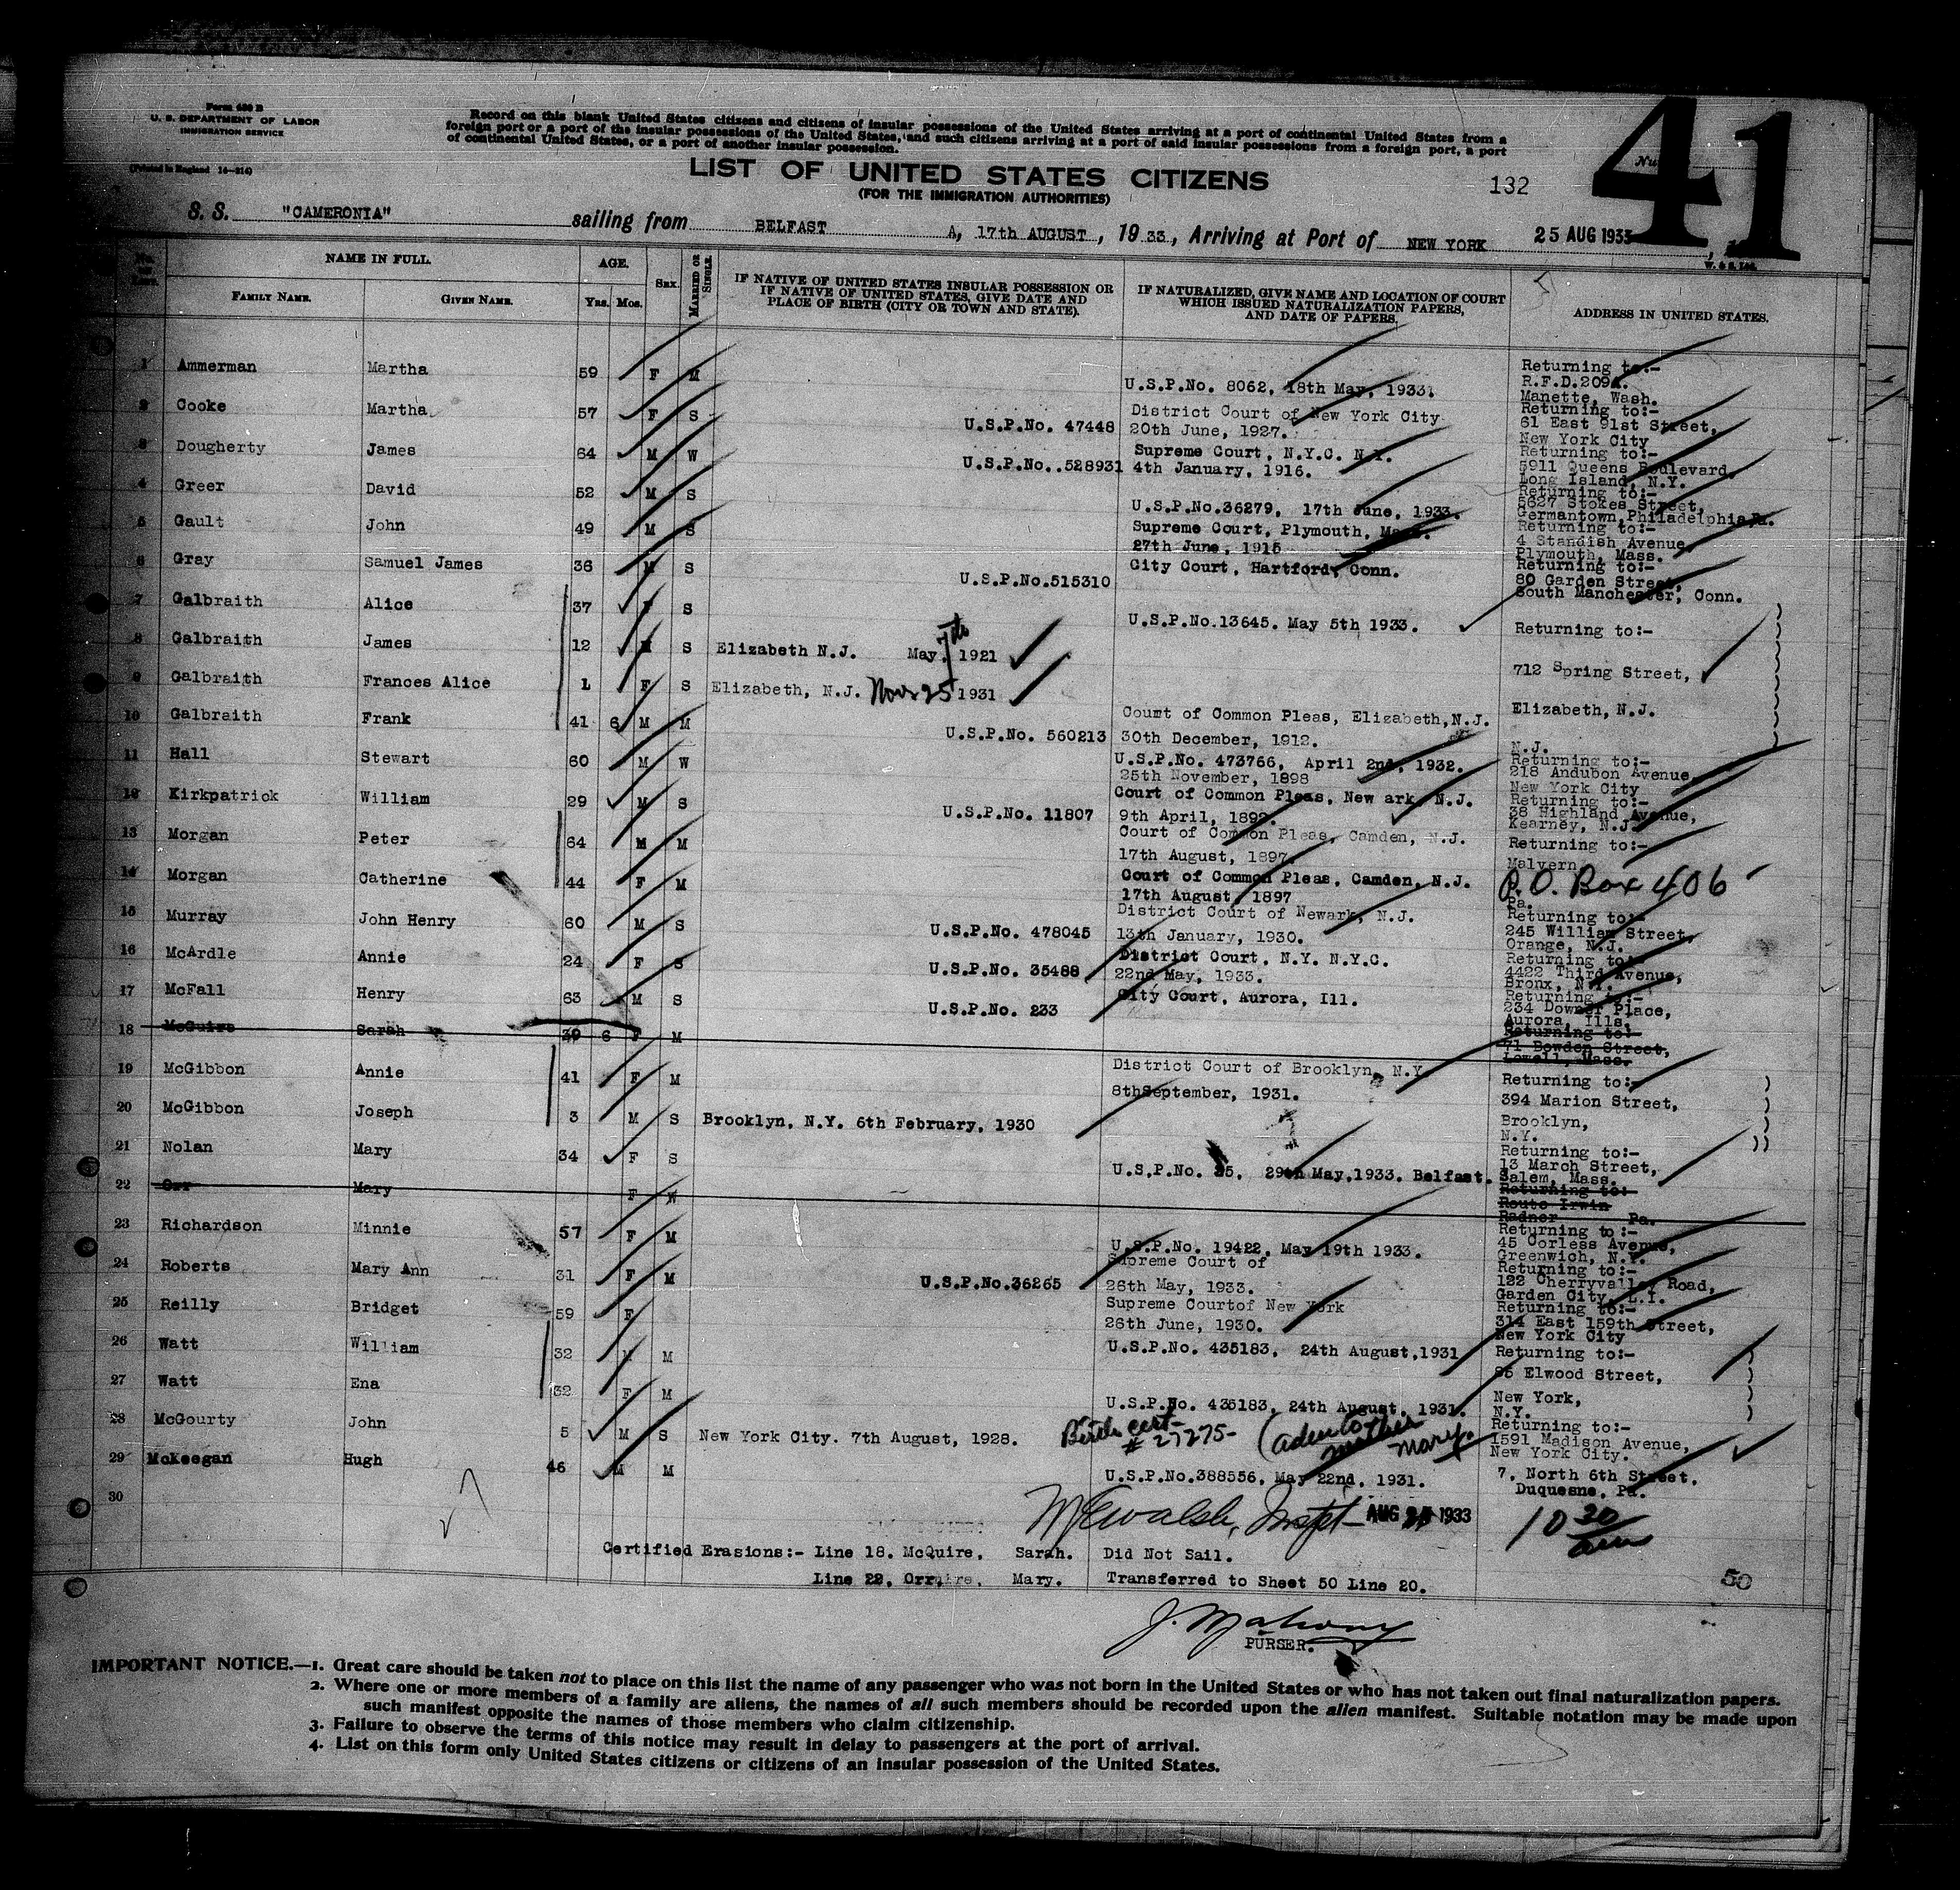 Form 630 B
U. S. DEPARTMENT OF LABOR
IMMIGRATION SERVICE
(Printed in England 14—214)
Record on this blank United States citizens and citizens of insular possessions of the United States arriving at a port of continental United States from a
foreign port or a port of the insular possessions of the United States, and such citizens arriving at a port of said insular possessions from a foreign port, a port
of continental United States, or a port of another insular possession.
LIST OF UNITED STATES CITIZENS
(FOR THE IMMIGRATION AUTHORITIES)
132
41
S. S. "CAMERONIA" sailing from BELFAST A, 17th AUGUST, 19 33, Arriving at Port of NEW YORK 25 AUG 1933
NAME IN FULL. AGE. SEX. MARRIED OR SINGLE.
FAMILY NAME. GIVEN NAME. Yrs. Mos.
IF NATIVE OF UNITED STATES INSULAR POSSESSION OR
IF NATIVE OF UNITED STATES, GIVE DATE AND
PLACE OF BIRTH (CITY OR TOWN AND STATE).
IF NATURALIZED, GIVE NAME AND LOCATION OF COURT
WHICH ISSUED NATURALIZATION PAPERS,
AND DATE OF PAPERS.
ADDRESS IN UNITED STATES.
1 Ammerman Martha 59 F M U.S.P.No. 8062, 18th May, 1933. Returning to:-
R.F.D.209
Manette, Wash.
2 Cooke Martha 57 F S U.S.P.No. 47448 District Court of New York City
20th June, 1927. Returning to:-
61 East 91st Street,
New York City
3 Dougherty James 64 M W U.S.P.No..528931 Supreme Court, N.Y.C. N.Y.
4th January, 1916. Returning to:-
5911 Queens Boulevard,
Long Island, N.Y.
4 Greer David 52 M S U.S.P.No.36279, 17th June, 1933. Returning to:-
5627 Stokes Street,
Germantown,Philadelphia,Pa.
5 Gault John 49 M S Supreme Court, Plymouth, Mass.
27th June, 1915 Returning to:-
4 Standish Avenue,
Plymouth, Mass.
6 Gray Samuel James 36 M S U.S.P.No.515310 City Court, Hartford, Conn. Returning to:-
80 Garden Street,
South Manchester, Conn.
7 Galbraith Alice 37 F S U.S.P.No.13645. May 5th 1933. Returning to:-
8 Galbraith James 12 M S Elizabeth N.J. May. 7th 1921 712 Spring Street,
9 Galbraith Frances Alice 1 F S Elizabeth, N.J. Nov 25 1931 Elizabeth, N.J.
10 Galbraith Frank 41 6 M M U.S.P.No. 560213 Court of Common Pleas, Elizabeth,N.J.
30th December, 1912. N.J.
11 Hall Stewart 60 M W U.S.P.No. 473766, April 2nd, 1932.
25th November, 1898 Returning to:-
218 Andubon Avenue,
New York City
12 Kirkpatrick William 29 M S U.S.P.No. 11807 Court of Common Pleas, New ark, N.J.
9th April, 1892. Returning to:-
38 Highland Avenue,
Kearney, N.J.
13 Morgan Peter 64 M M Court of Common Pleas, Camden, N.J.
17th August, 1897. Returning to:-
Malvern
14 Morgan Catherine 44 F M Court of Common Pleas, Camden, N.J.
17th August, 1897 P.O. Box 406
Pa.
15 Murray John Henry 60 M S U.S.P.No. 478045 District Court of Newark, N.J.
13th January, 1930. Returning to:-
245 William Street,
Orange, N.J.
16 McArdle Annie 24 F S U.S.P.No. 35488 District Court, N.Y. N.Y.C.
22nd May, 1933. Returning to:-
4422 Third Avenue,
Bronx, N.Y.
17 McFall Henry 63 M S U.S.P.No. 233 City Court, Aurora, Ill. Returning to:-
234 Downer Place,
Aurora, Ills.
18 McGuire Sarah 39 6 F M Returning to:-
71 Bowden Street,
Lowell, Mass.
19 McGibbon Annie 41 F M District Court of Brooklyn, N.Y.
8thSeptember, 1931. Returning to:-
394 Marion Street,
20 McGibbon Joseph 3 M S Brooklyn, N.Y. 6th February, 1930 Brooklyn,
N.Y.
21 Nolan Mary 34 F S U.S.P.No. 35. 29th May,1933. Belfast. Returning to:-
13 March Street,
Salem, Mass.
22 Orr Mary F W Returning to:-
Route Irwin
Radnor Pa.
23 Richardson Minnie 57 F M U.S.P.No. 19422, May 19th 1933. Returning to:-
45 Corless Avenue,
Greenwich, N.Y.
24 Roberts Mary Ann 31 F M U.S.P.No.36265 Supreme Court of
26th May, 1933. Returning to:-
122 Cherryvalley Road,
Garden City, L.I.
25 Reilly Bridget 59 F Supreme Courtof New York
26th June, 1930. Returning to:-
314 East 159th Street,
New York City
26 Watt William 32 M M U.S.P.No. 435183, 24th August,1931 Returning to:-
27 Watt Ena 32 F M U.S.P.No. 435183, 24th August, 1931. 85 Elwood Street,
New York,
N.Y.
28 McGourty John 5 M S New York City. 7th August, 1928. Birth cert-
# 27275- mother
Mary. Returning to:-
1591 Madison Avenue,
New York City.
29 McKeegan Hugh 46 M M U.S.P.No.388556, May 22nd, 1931. 7, North 6th Street,
Duquesne, Pa.
30
AUG 25 1933
10 30
am
Certified Erasions:- Line 18. McQuire, Sarah. Did Not Sail.
Line 22, Orr, Mary. Transferred to Sheet 50 Line 20.
50
J. Mahony
PURSER.
IMPORTANT NOTICE.—1. Great care should be taken not to place on this list the name of any passenger who was not born in the United States or who has not taken out final naturalization papers.
2. Where one or more members of a family are aliens, the names of all such members should be recorded upon the alien manifest. Suitable notation may be made upon
such manifest opposite the names of those members who claim citizenship.
3. Failure to observe the terms of this notice may result in delay to passengers at the port of arrival.
4. List on this form only United States citizens or citizens of an insular possession of the United States.